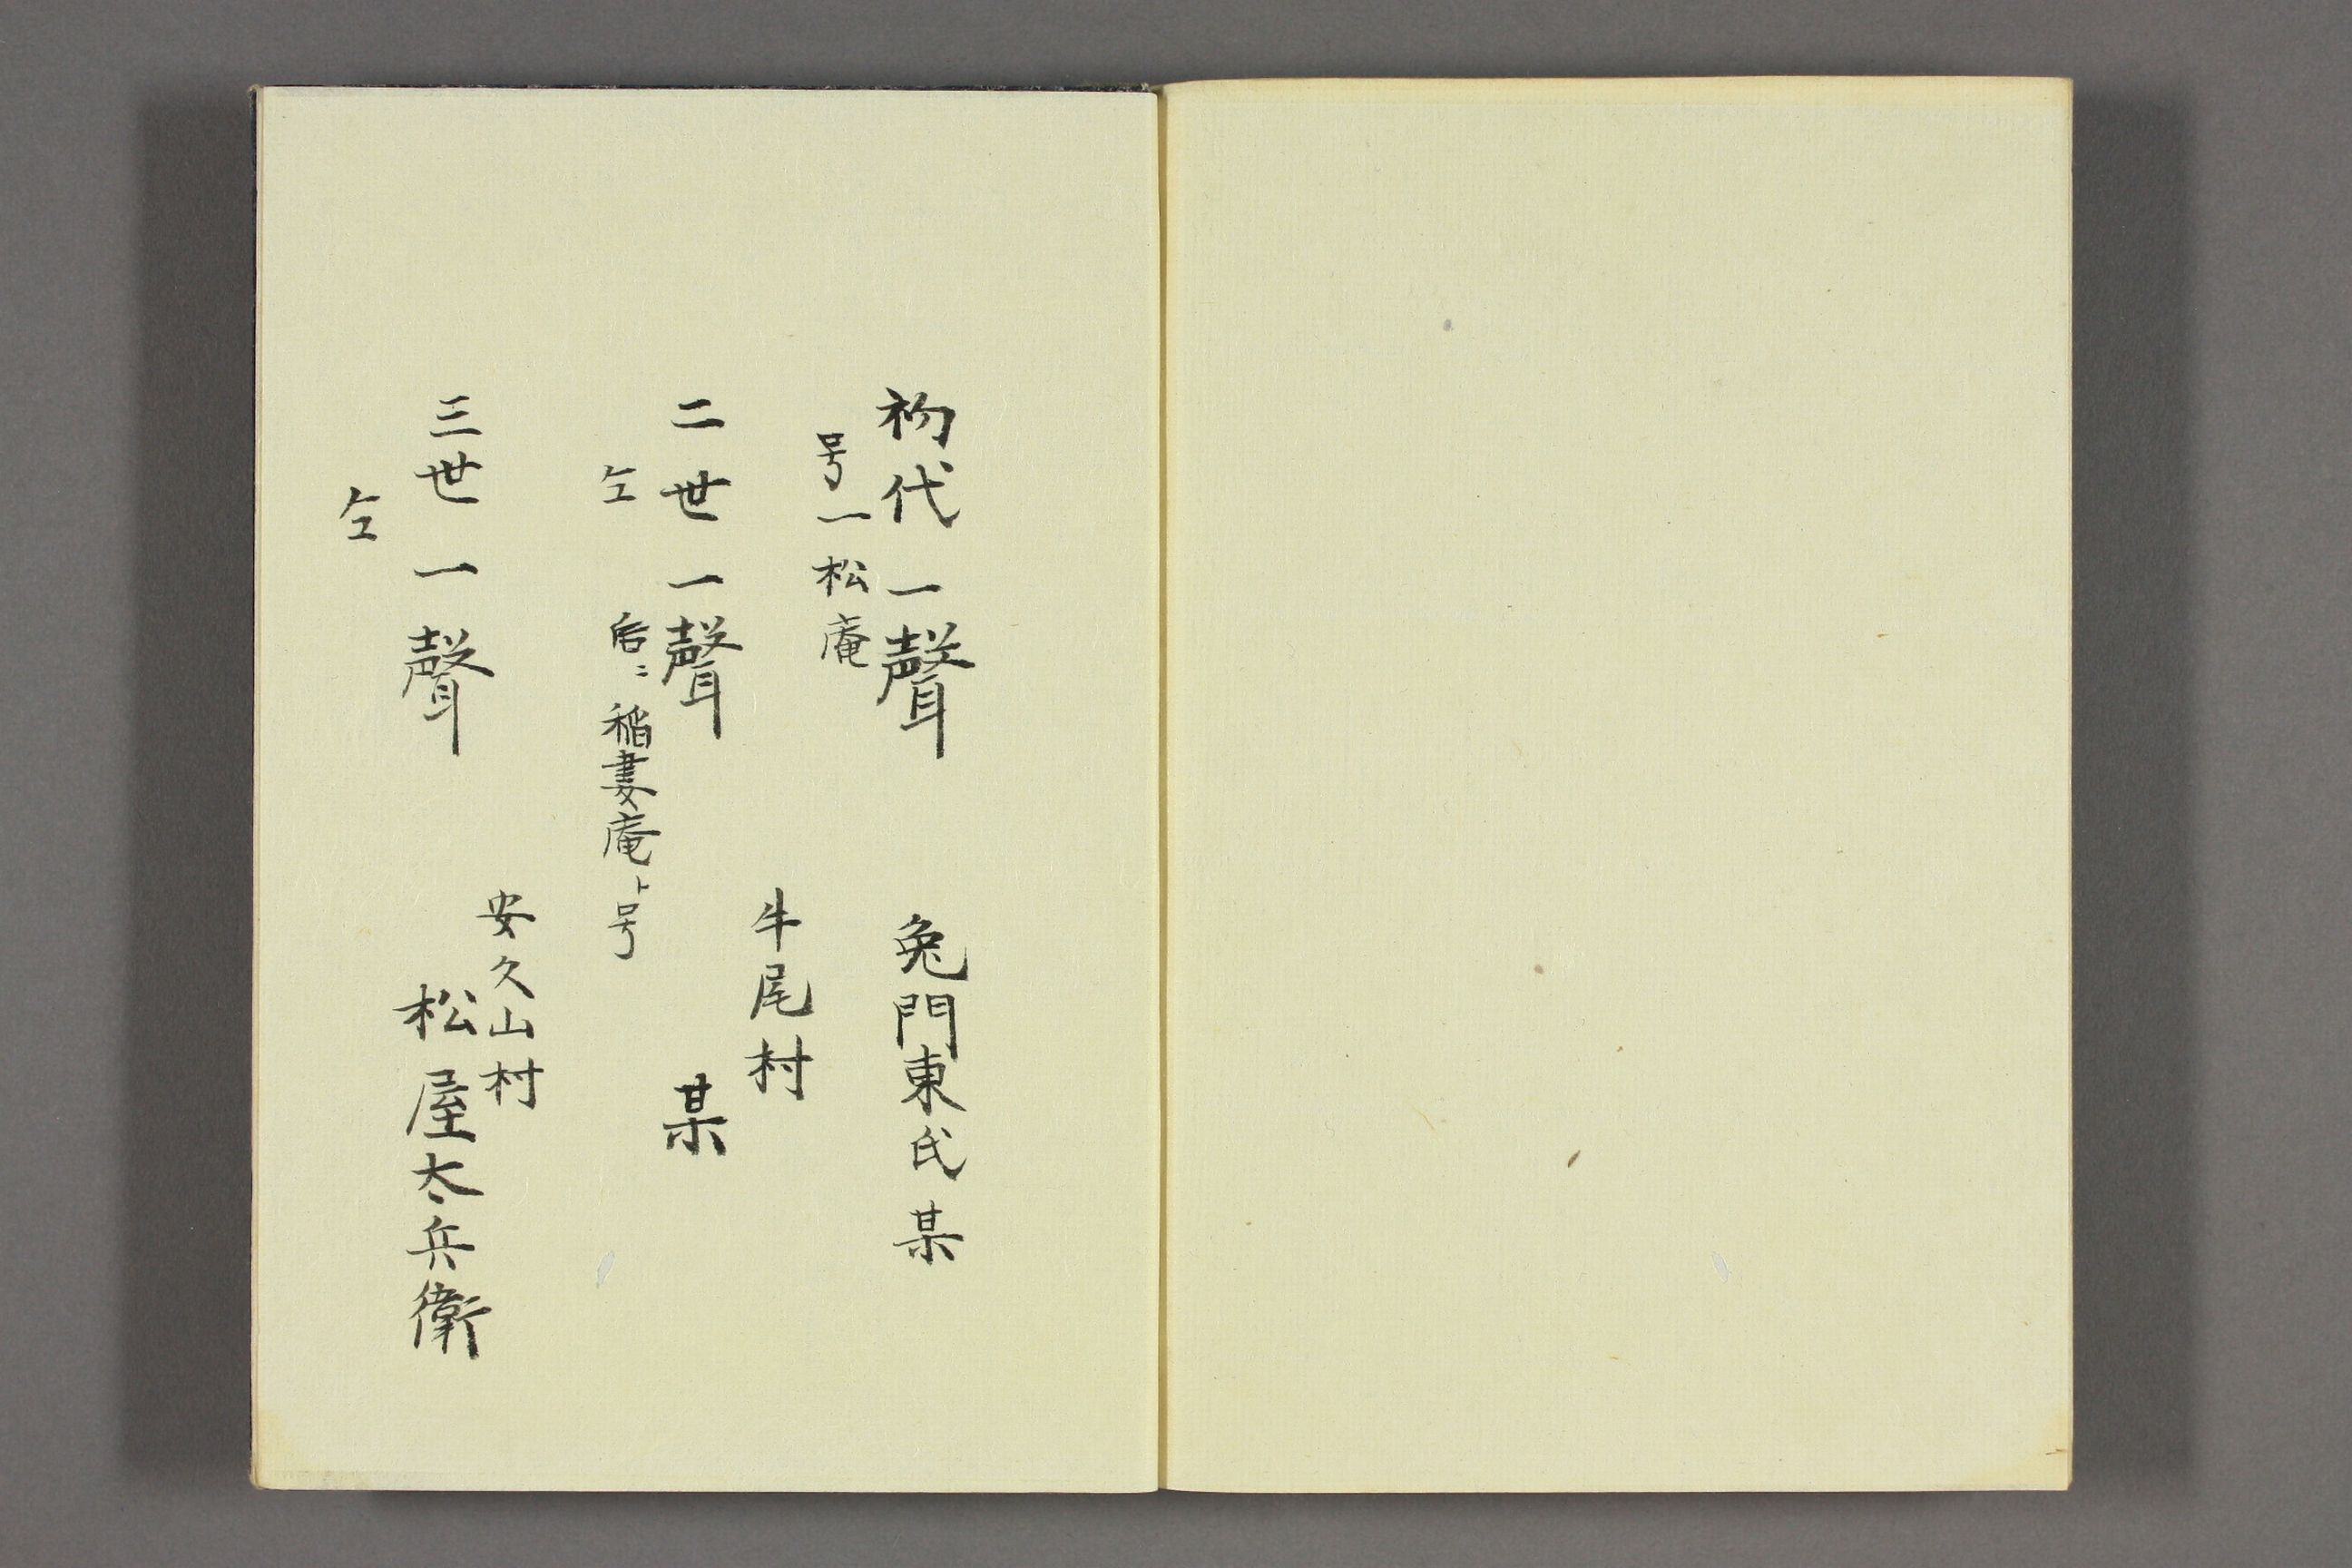 初代一聲　兔門東氏某
号一松庵
牛尾村
二世一聲　某
仝　后ニ稲妻庵ト号
安久山村
三世一聲　松屋太兵衛
仝